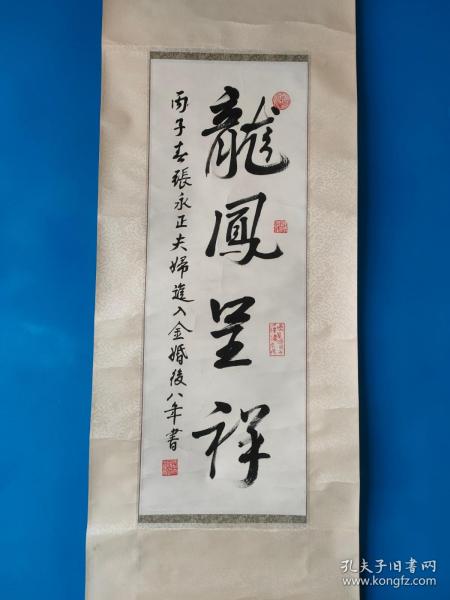 龍鳳呈祥
丙子春張永正夫婦進入金婚後八年書
孔夫子旧书网
www.kongfz.com